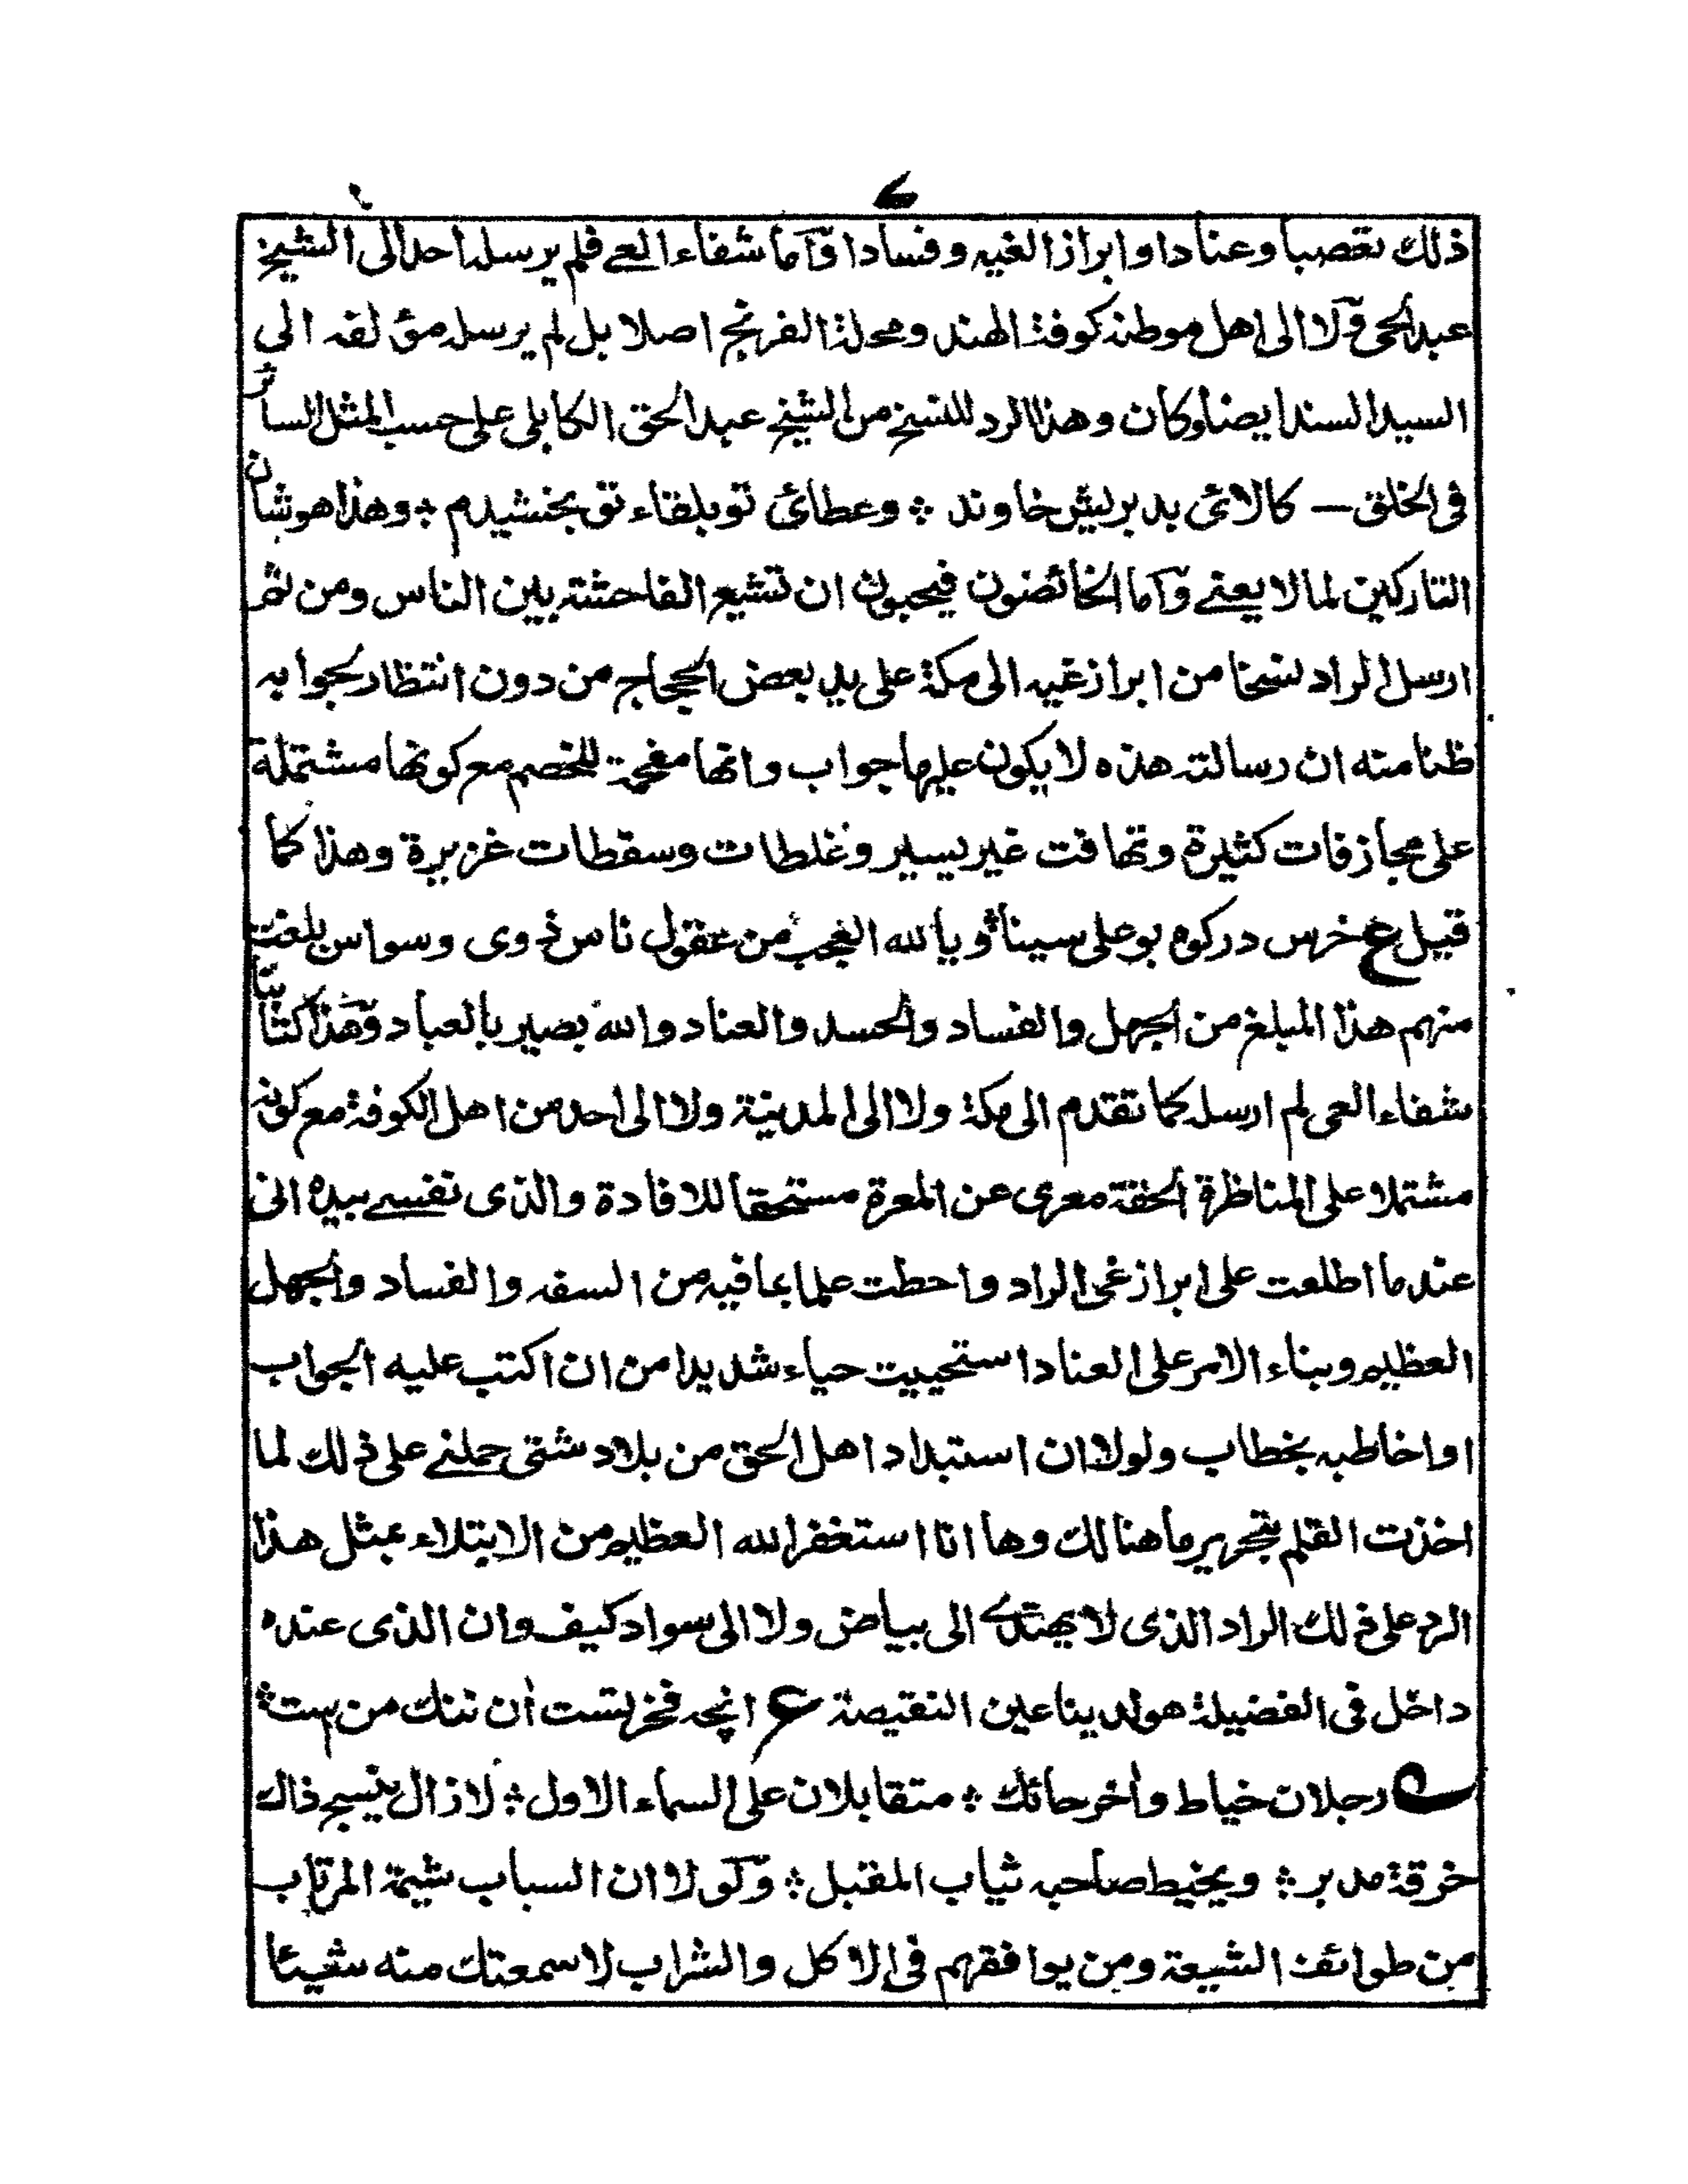 ذلك تعصبا وعنادا وابرازا لغيه وفسادا وآما شفاء العے فلم يرسله احد الى الشيخ
عبد الحى وَلا الى اهل موطنه كوفة الهند ومحلة الفرنج اصلا بل لم يرسله مؤلفه الى
السيد السند ايضا وكان وهذا الرد للنسخ من الشيخ عبد الحق الكابلى على حسب المثل السائر
فى الخلق — كالائى بد بريش خاوند ؞ وعطائى تو بلقاء تو بخشيدم ؞ وهذا هو شان
التاركين لما لا يعنے وآما الخائضون فيحبون ان تشيع الفاحشة بين الناس ومن ثم
ارسل الراد نسخا من ابراز غيه الى مكة على يد بعض الحجاج من دون انتظار لجوابه
ظنا منه ان رسالته هذه لا يكون عليها جواب وانها مفحمة للخصم مع كونها مشتملة
على مجازفات كثيرة وتهافت غير يسير وغلطات وسقطات غزيرة وهذا كما
قيل ع خرس در كوه بو على سينا ؞ ويا لله العجب من عقول ناس ذوى وسواس بلغت
منهم هذا المبلغ من الجهل والفساد والحسد والعناد والله بصير بالعباد وَهذا كتابنا
شفاء العى لم ارسله كما تقدم الى مكة ولا الى المدينة ولا الى احد من اهل الكوفة مع كونه
مشتملا على المناظرة الحقة معرى عن المعرة مستحقا للافادة والذى نفسے بيده انى
عند ما اطلعت على ابراز غى الراد واحطت علما بما فيه من السفه والفساد والجهل
العظيم وبناء الامر على العناد استحييت حياء شديدا من ان اكتب عليه الجواب
او اخاطبه بخطاب ولولا ان استبداد اهل الحق من بلاد شتى حملنے على ذلك لما
اخذت القلم بتحرير ما هنالك وها انا استغفر الله العظيم من الابتلاء بمثل هذا
الرد على ذلك الراد الذى لا يهتدے الى بياض ولا الى سواد كيف وان الذى عنده
داخل فى الفضيلة هو لدينا عين النقيصة ع انچه فخر تست آن ننك من ست ؞
رجلان خياط وآخر حائك ؞ متقابلان على السماء الاول ؞ لا زال ينسج ذاك
خرقة مدبر ؞ ويخيط صاحبه ثياب المقبل ؞ وَلَو لا ان السباب شيمة المرتاب
من طوائف الشيعة ومن يوافقهم فى الاكل والشراب لاسمعتك منه شيئا